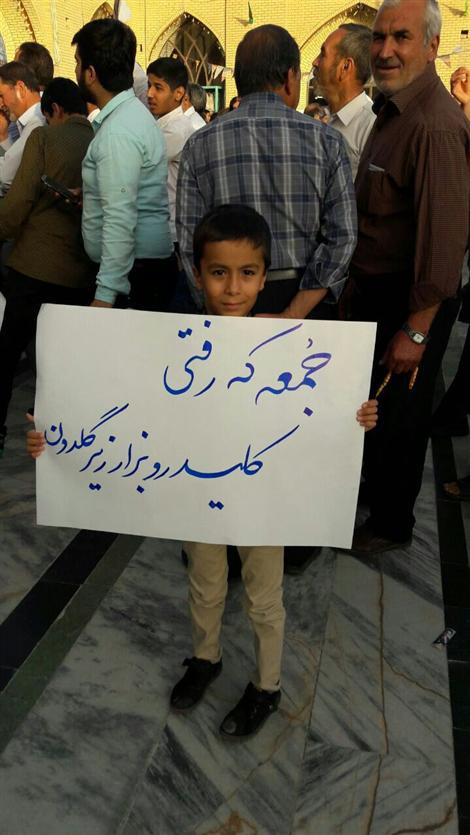 جُمعه که رفتی
کلید رو بزار زیر گلدون